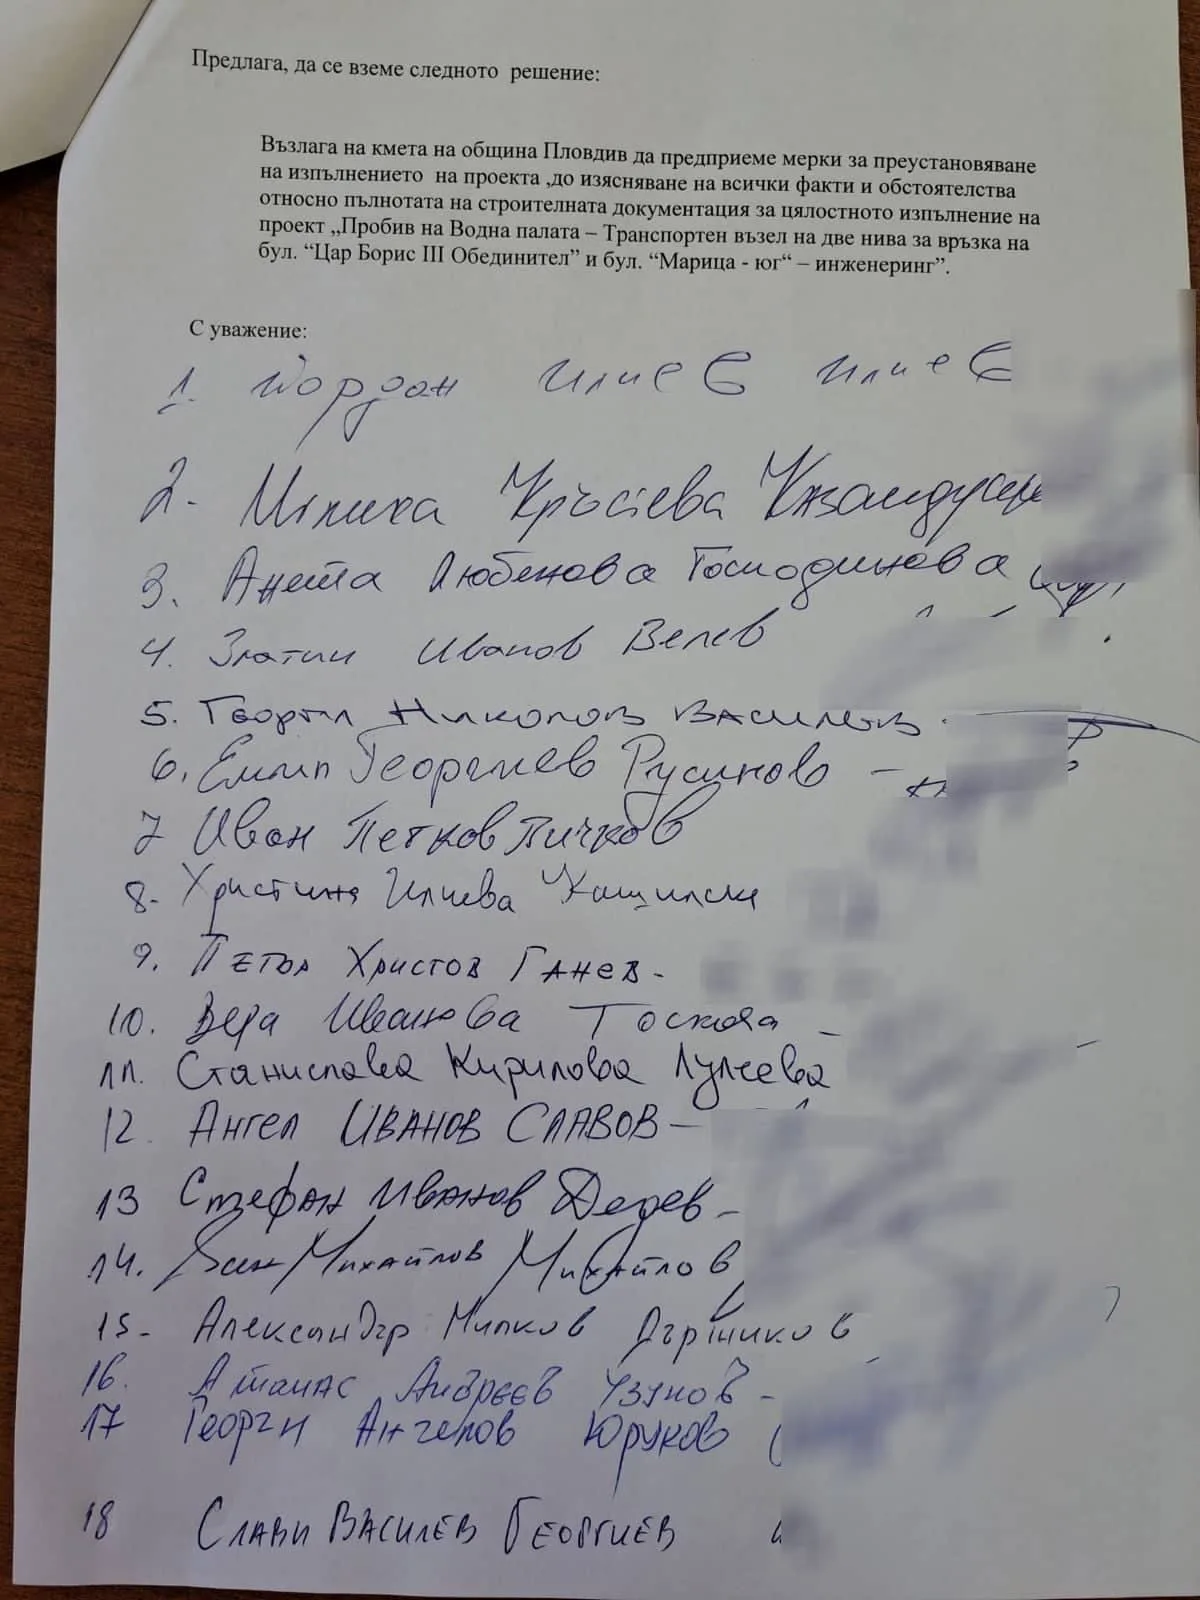 Предлага, да се вземе следното решение:
Възлага на кмета на община Пловдив да предприеме мерки за преустановяване
на изпълнението на проекта ,до изясняване на всички факти и обстоятелства
относно пълнотата на строителната документация за цялостното изпълнение на
проект „Пробив на Водна палата – Транспортен възел на две нива за връзка на
бул. “Цар Борис III Обединител” и бул. “Марица - юг“ – инженеринг”.
С уважение:
1. Йордан Илиев Илиев
2- Илияна Кръстева
3. Анета Любенова Господинова
4. Златин Иванов Велев
5. Георги Николов Василев
6. Емил Георгиев Русинов –
7 Иван Петков Пичков
8- Христина Илиева
9. Петър Христов Ганев-
10. Вера Иванова Тоскова –
11. Станислава Кирилова Лулчева
12 Ангел Иванов Славов –
13 Стефан Иванов Дедев –
14. Михайлов Михайлов
15- Александър Милков Държиков
16. Атанас Андреев Узунов –
17 Георги Ангелов Юруков
18 Слави Василев Георгиев